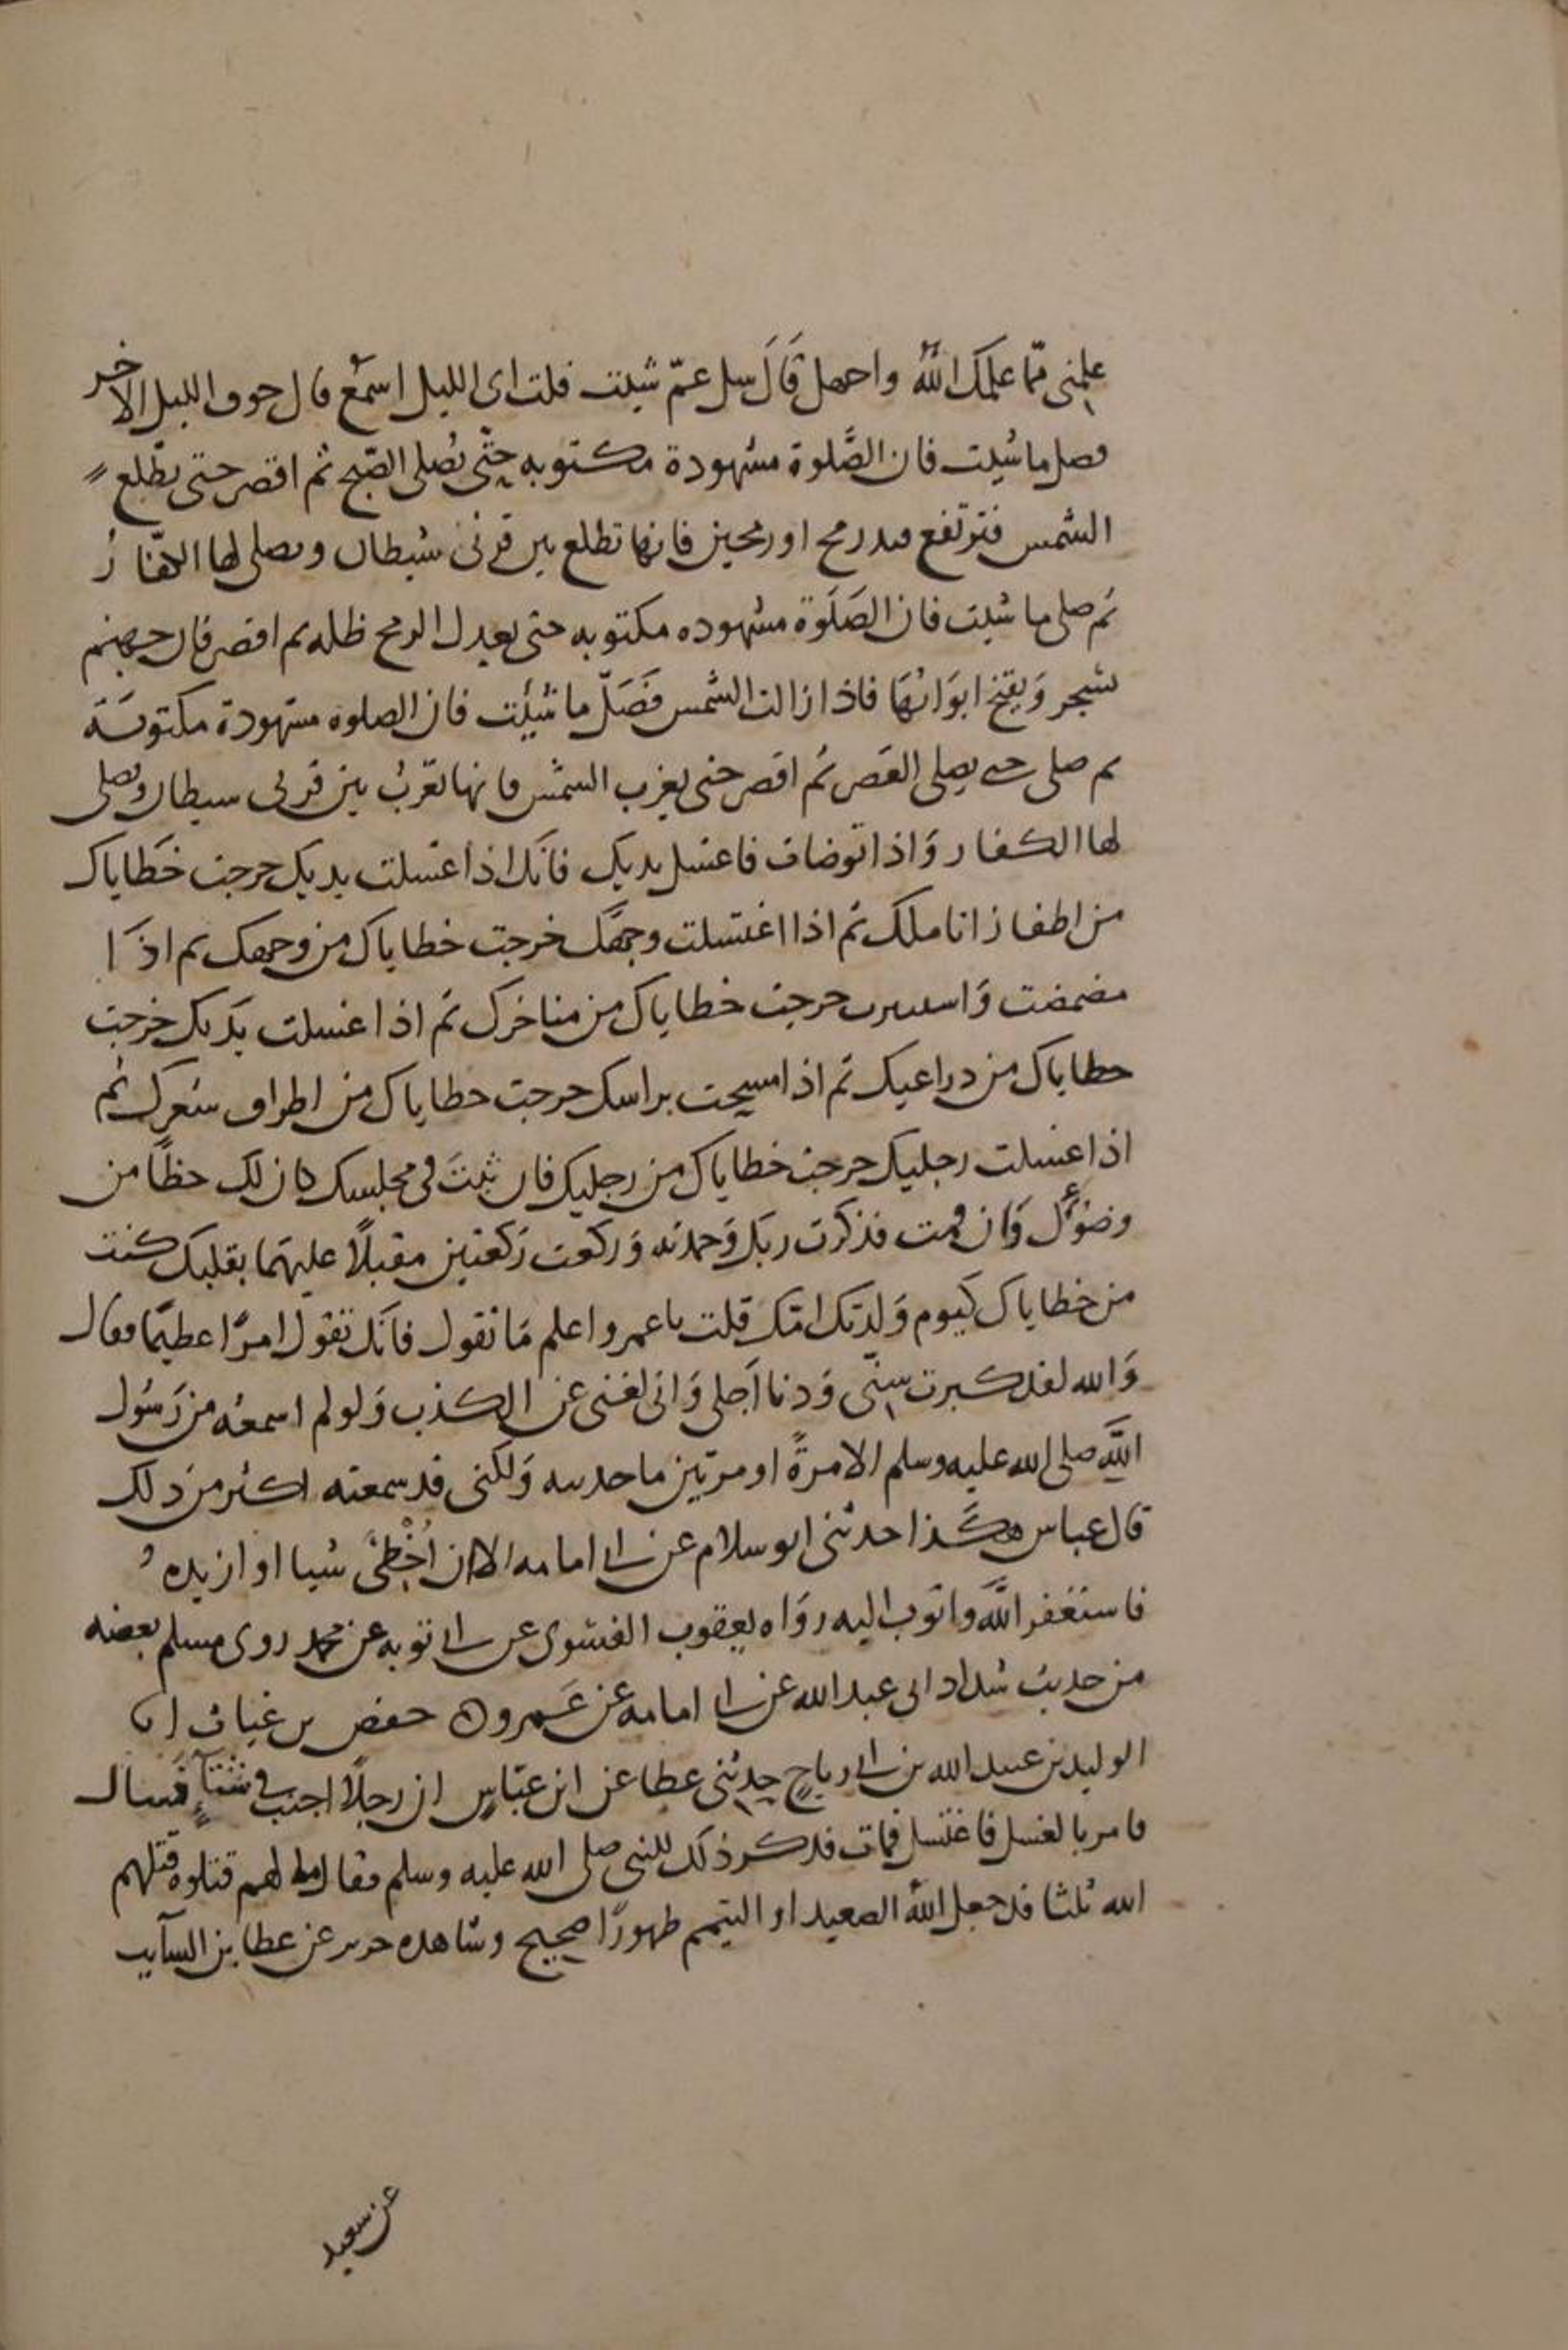 علمنى مما علمك الله واجهل قال سل عم شيت قلت اى الليل اسمع قال جوف الليل الاخر
فصل ما شيت فان الصلوة مشهودة مكتوبه حتى تصلى الصبح ثم اقصر حتى تطلع
الشمس فترتفع قيد رمح او رمحين فانها تطلع بين قرنى شيطان ويصلى لها الكفار
ثم صلى ما شيت فان الصلوة مشهوده مكتوبه حتى يعدل الرمح ظله ثم اقصر فان جهنم
تسجر وتفتح ابوابها فاذا زالت الشمس فصل ما شيت فان الصلوه مشهودة مكتوبة
ثم صلى حتى تصلى العصر ثم اقصر حتى تغرب الشمس فانها تغرب بين قرنى شيطان ويصلى
لها الكفار واذا توضات فاغسل يديك فانك اذا غسلت يديك خرجت خطاياك
من اظفار اناملك ثم اذا اغتسلت وجهك خرجت خطاياك من وجهك ثم اذا
مضمضت واستنثرت خرجت خطاياك من مناخرك ثم اذا غسلت يديك خرجت
خطاياك من ذراعيك ثم اذا مسحت براسك خرجت خطاياك من اطراف شعرك ثم
اذا غسلت رجليك خرجت خطاياك من رجليك فان ثبت فى مجلسك كان لك حظا من
وضوءك وان قمت فذكرت ربك وحمدته وركعت ركعتين مقبلا عليهما بقلبك كنت
من خطاياك كيوم ولدتك امك قلت يا عمرو اعلم ما تقول فانك تقول امرا عظيما فقال
والله لقد كبرت سنى ودنا اجلى وانى لغنى عن الكذب ولو لم اسمعه من رسول
الله صلى الله عليه وسلم الا مرة او مرتين ما حدثته ولكنى قد سمعته اكثر من ذلك
قال عباس هكذا حدثنى ابو سلام عن ابى امامه الا ان اخطئ شيا او ازيده
فاستغفر الله واتوب اليه رواه يعقوب الفسوى عن ابى توبه عن محمد روى مسلم بعضه
من حديث شداد ابى عبد الله عن ابى امامه عن عمرو ه حفص بن غياث انا
الوليد بن عبيد الله بن ابى رباح حدثنى عطا عن ابن عباس ان رجلا اجنب فى شتاء فسال
فامر بالغسل فاغتسل فمات فذكر ذلك للنبى صلى الله عليه وسلم فقال ما لهم قتلوه قتلهم
الله ثلثا قد جعل الله الصعيد او التيمم طهورا صحيح وشاهده جرير عن عطا بن السايب
عن سعيد